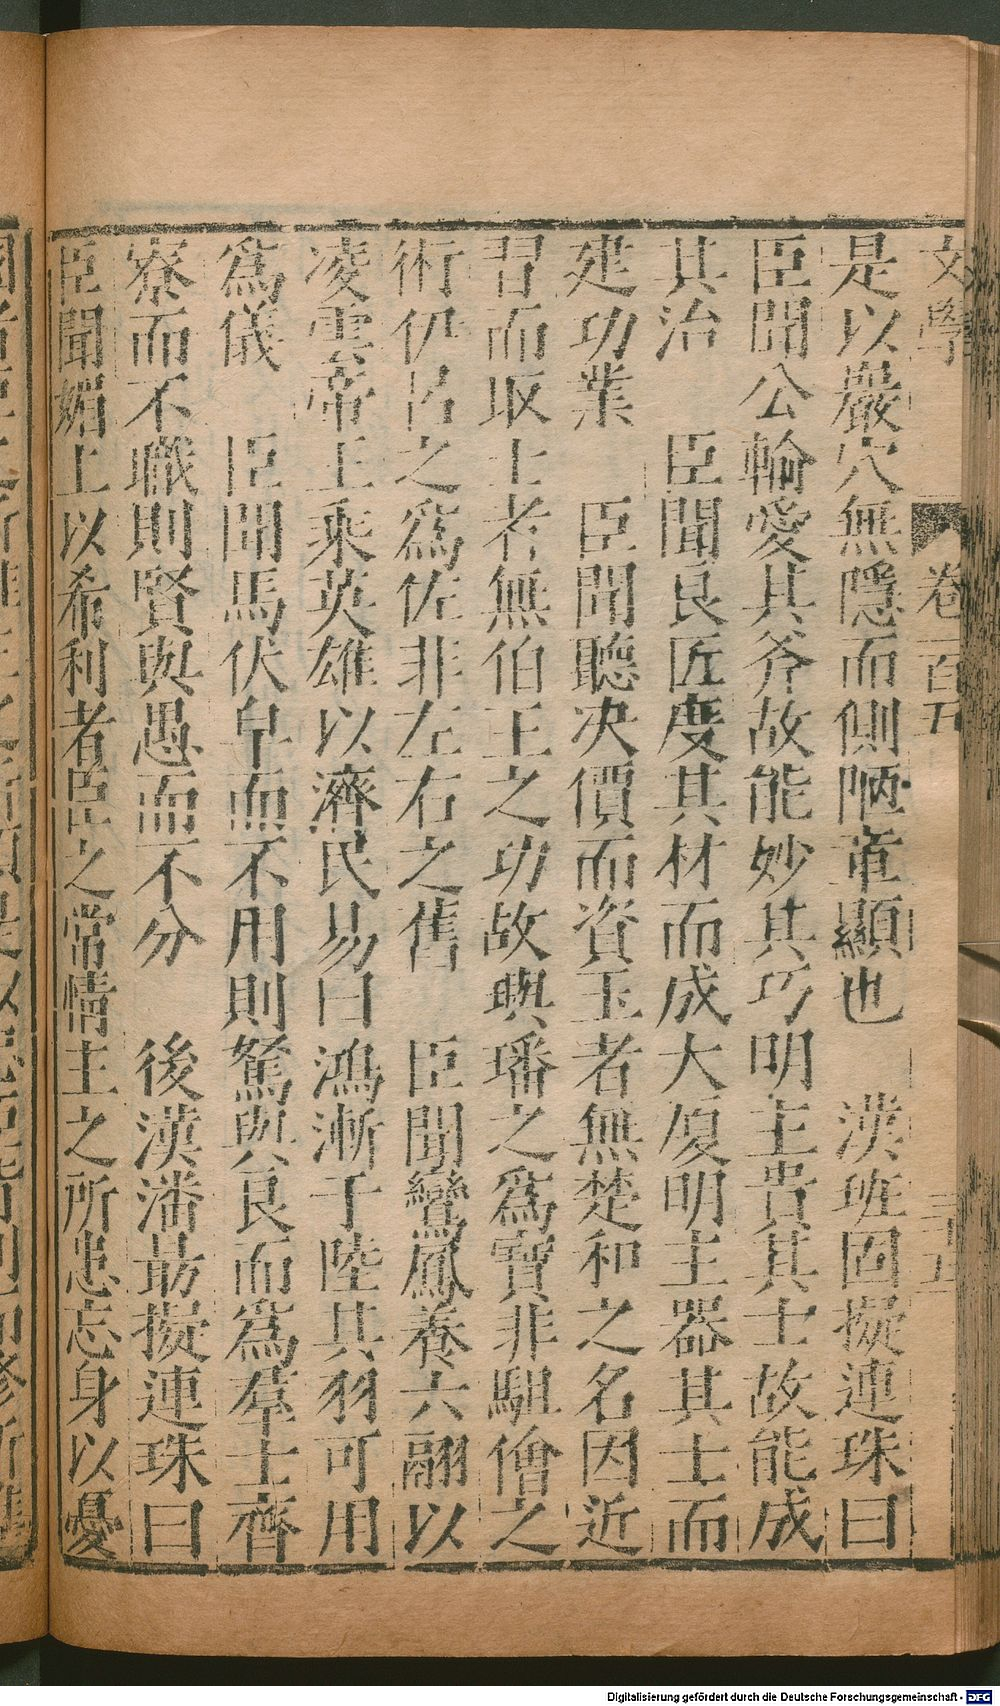 文學 卷一百五 三十五
是以嚴穴無隱而側陋章顯也 漢班固擬連珠曰
臣聞公輸愛其斧故能妙其巧明主貴其士故能成
其治 臣聞良匠度其材而成大廈明主器其士而
建功業 臣聞聽决價而資玉者無楚和之名因近
習而取士者無伯王之功故璵璠之爲寶非駔儈之
術伊呂之爲佐非左右之舊 臣聞鸞鳳養六翮以
凌雲帝王乘英雄以濟民易曰鴻漸于陸其羽可用
爲儀 臣聞馬伏皁而不用則駑與良而爲羣士齊
寮而不職則賢與愚而不分 後漢潘勗擬連珠曰
臣聞媚上以希利者臣之常情主之所患忘身以憂